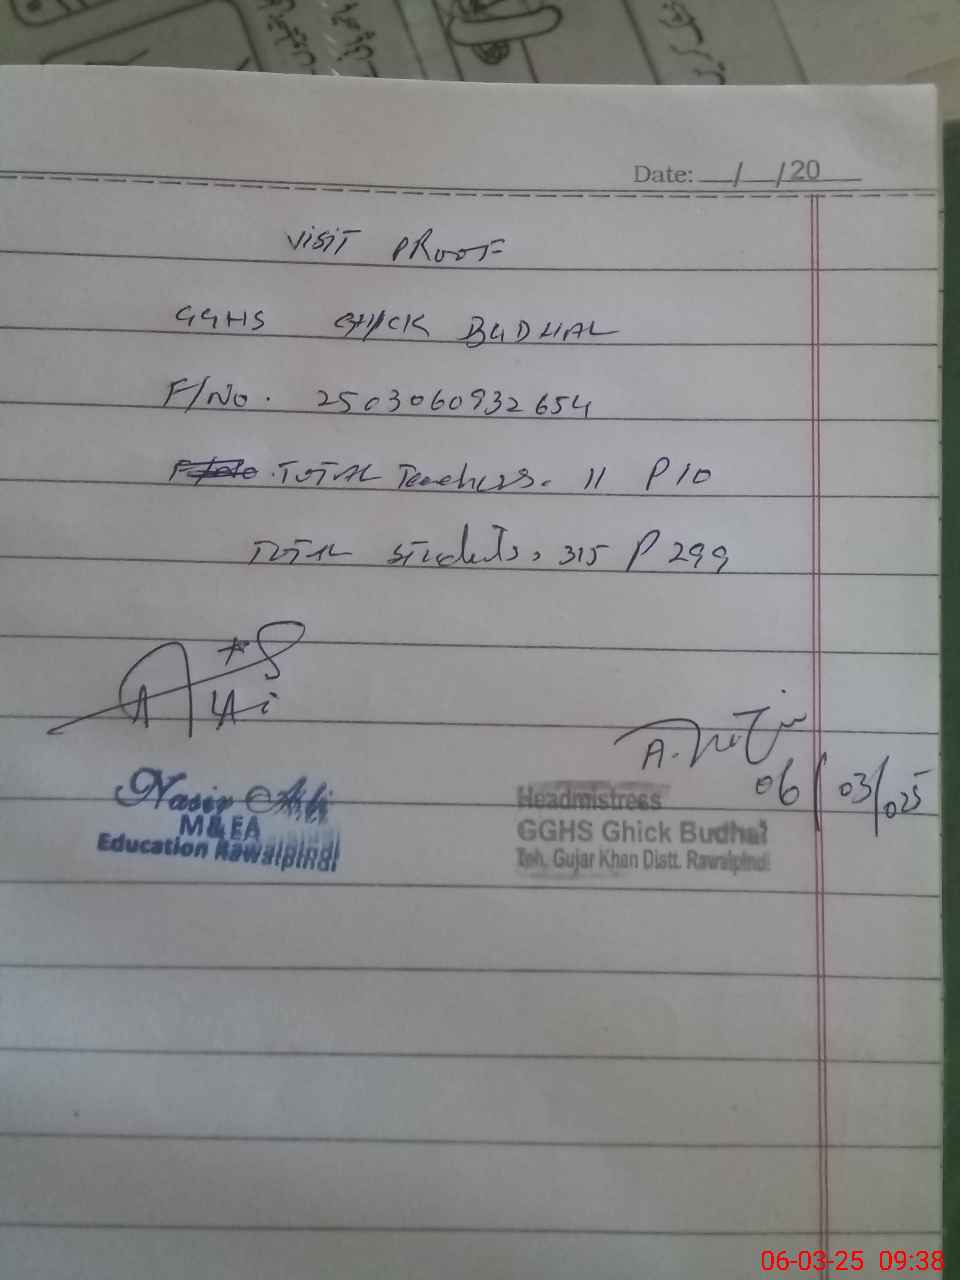 Date: __/__/20__
VISIT PROOF
GGHS GHICK BUDHAL
F/No. 2503060932654
TOTAL Teachers. 11 P 10
TOTAL Students, 315 P 299
06/03/025
Nasir Ali
M&EA
Education Rawalpindi
Headmistress
GGHS Ghick Budhal
Teh. Gujar Khan Distt. Rawalpindi
06-03-25 09:38